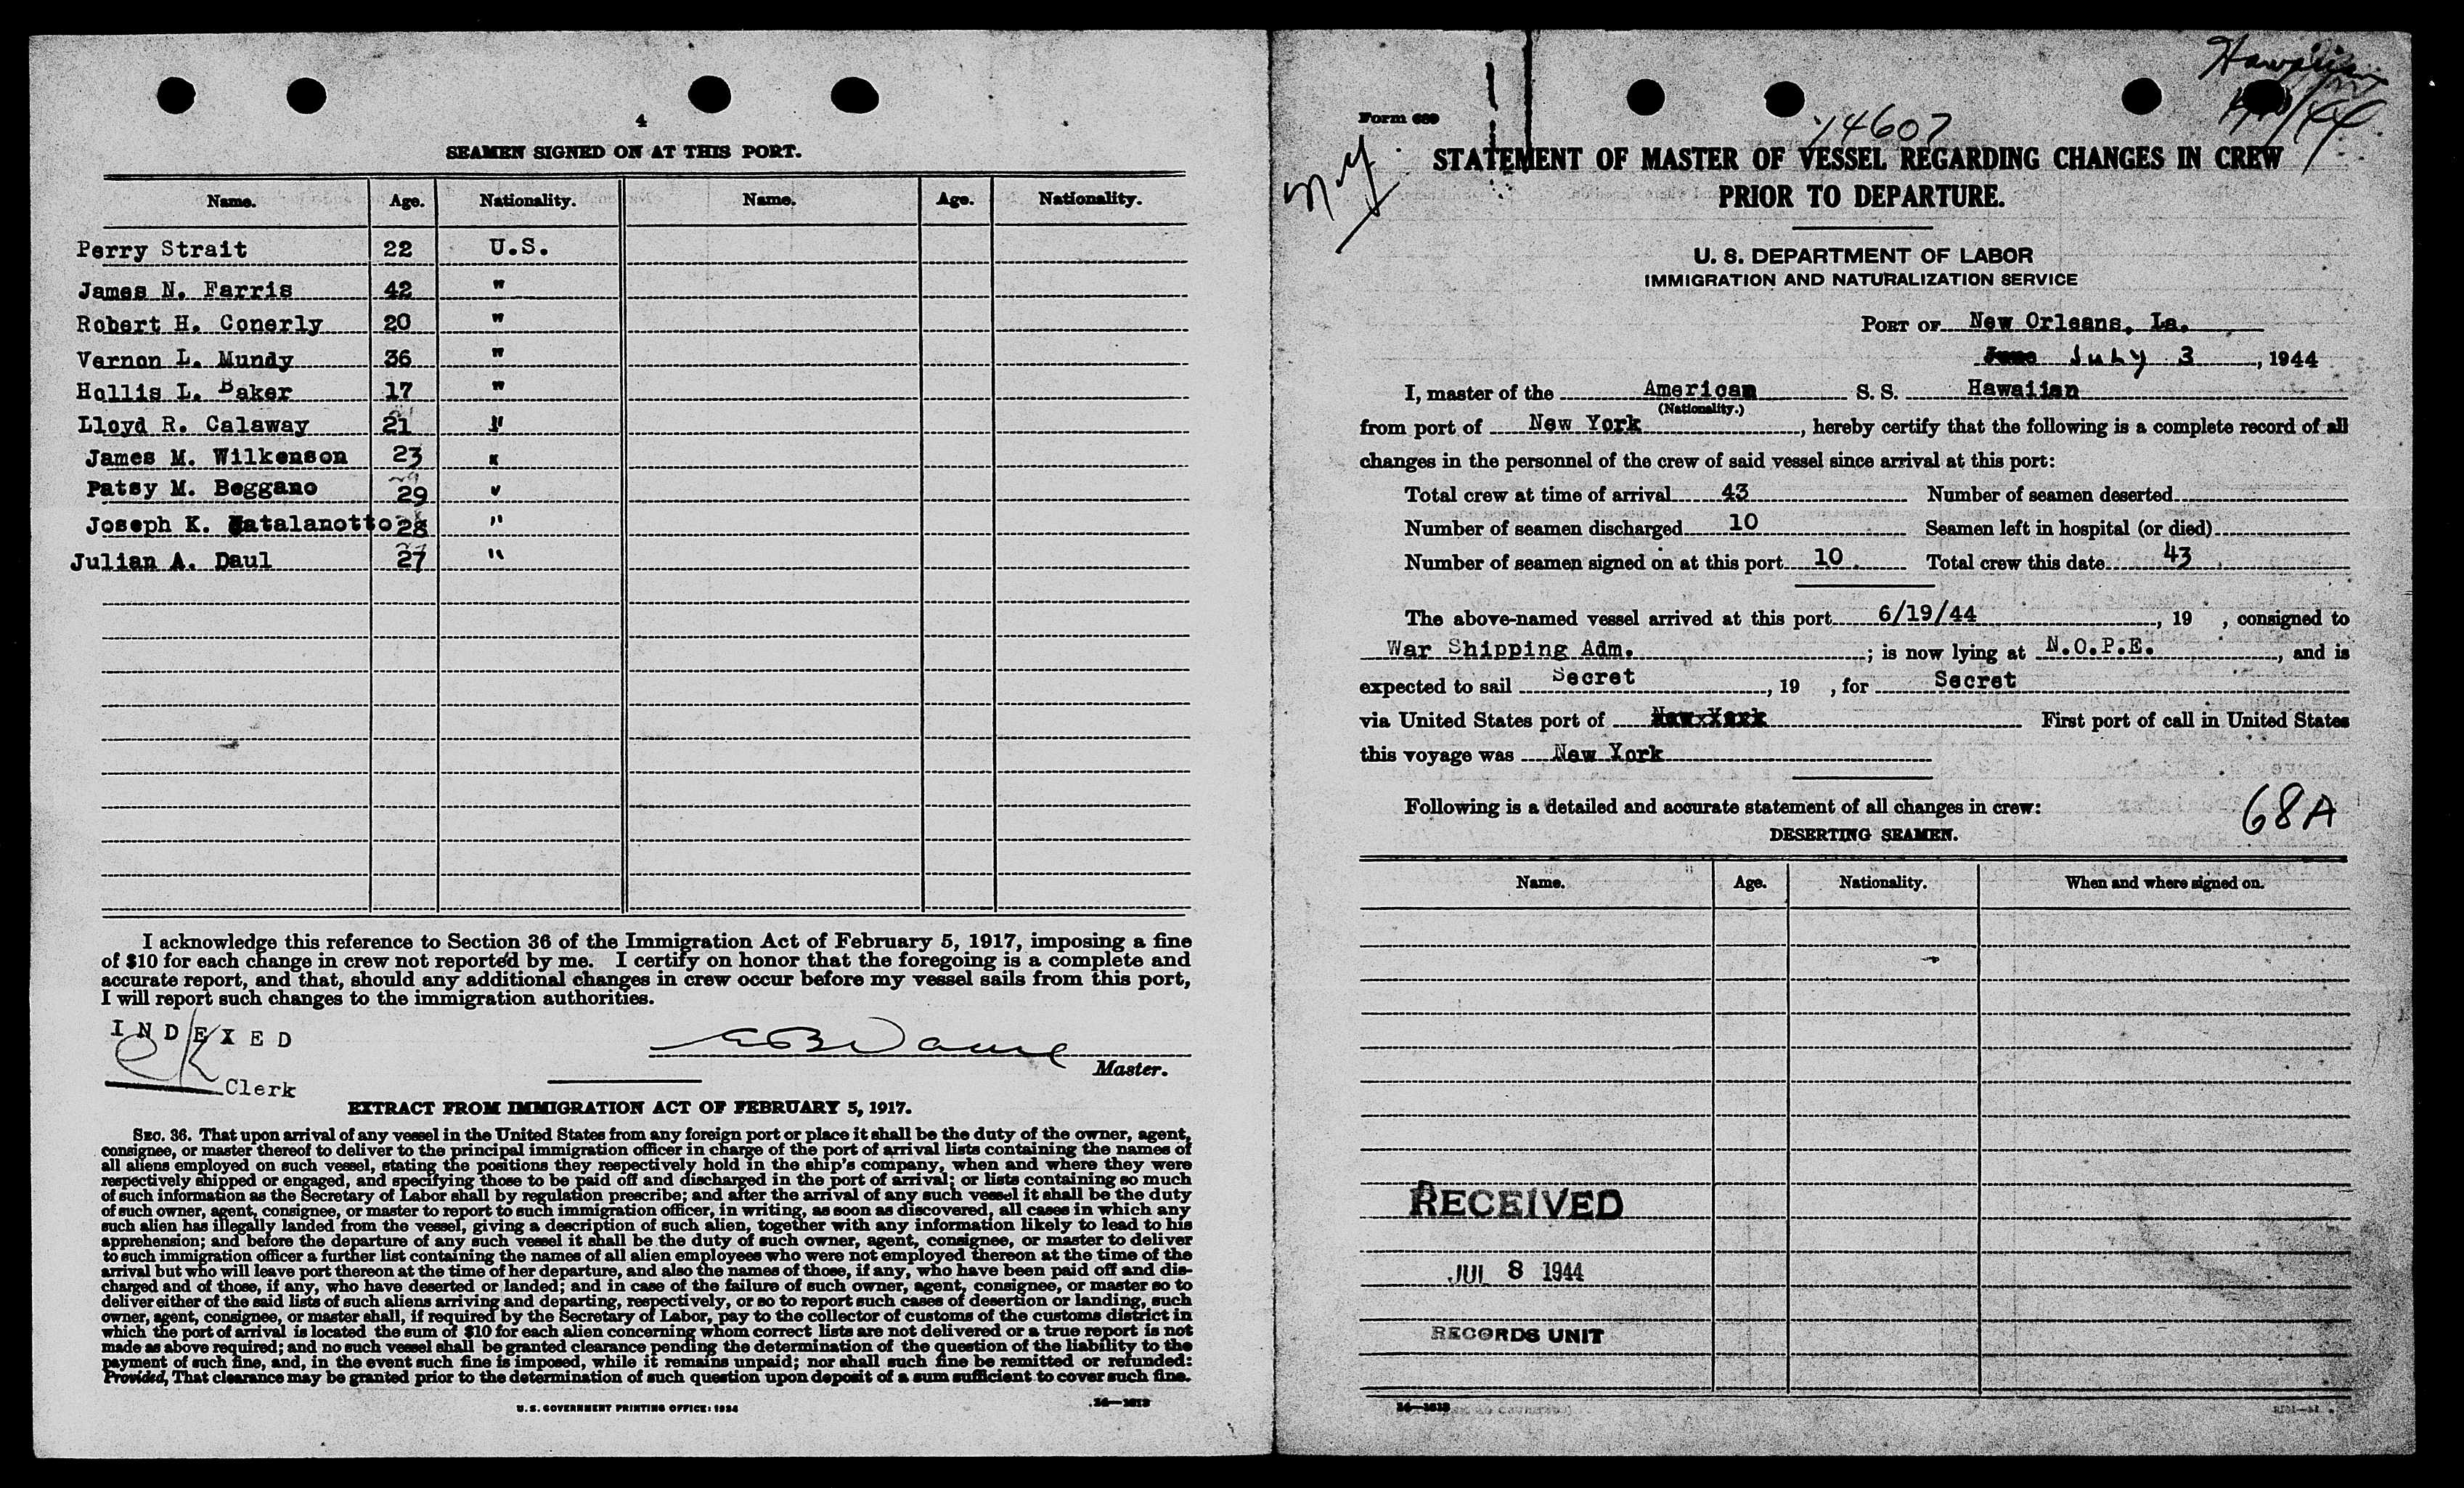 4
SEAMEN SIGNED ON AT THIS PORT.
Name. Age. Nationality. Name. Age. Nationality.
Perry Strait 22 U.S.
James N. Farris 42 "
Robert H. Conerly 20 "
Vernon L. Mundy 36 "
Hollis L. Baker 17 "
Lloyd R. Calaway 21 "
James M. Wilkenson 23 "
Patsy M. Beggano 29 "
Joseph K. Catalanotto 28 "
Julian A. Daul 27 "
I acknowledge this reference to Section 36 of the Immigration Act of February 5, 1917, imposing a fine
of $10 for each change in crew not reported by me. I certify on honor that the foregoing is a complete and
accurate report, and that, should any additional changes in crew occur before my vessel sails from this port,
I will report such changes to the immigration authorities.
INDEXED
Clerk
Master.
EXTRACT FROM IMMIGRATION ACT OF FEBRUARY 5, 1917.
SEC. 36. That upon arrival of any vessel in the United States from any foreign port or place it shall be the duty of the owner, agent,
consignee, or master thereof to deliver to the principal immigration officer in charge of the port of arrival lists containing the names of
all aliens employed on such vessel, stating the positions they respectively hold in the ship's company, when and where they were
respectively shipped or engaged, and specifying those to be paid off and discharged in the port of arrival; or lists containing so much
of such information as the Secretary of Labor shall by regulation prescribe; and after the arrival of any such vessel it shall be the duty
of such owner, agent, consignee, or master to report to such immigration officer, in writing, as soon as discovered, all cases in which any
such alien has illegally landed from the vessel, giving a description of such alien, together with any information likely to lead to his
apprehension; and before the departure of any such vessel it shall be the duty of such owner, agent, consignee, or master to deliver
to such immigration officer a further list containing the names of all alien employees who were not employed thereon at the time of the
arrival but who will leave port thereon at the time of her departure, and also the names of those, if any, who have been paid off and dis-
charged and of those, if any, who have deserted or landed; and in case of the failure of such owner, agent, consignee, or master so to
deliver either of the said lists of such aliens arriving and departing, respectively, or so to report such cases of desertion or landing, such
owner, agent, consignee, or master shall, if required by the Secretary of Labor, pay to the collector of customs of the customs district in
which the port of arrival is located the sum of $10 for each alien concerning whom correct lists are not delivered or a true report is not
made as above required; and no such vessel shall be granted clearance pending the determination of the question of the liability to the
payment of such fine, and, in the event such fine is imposed, while it remains unpaid; nor shall such fine be remitted or refunded:
Provided, That clearance may be granted prior to the determination of such question upon deposit of a sum sufficient to cover such fine.
U.S. GOVERNMENT PRINTING OFFICE: 1934 14—1613
Hawaiian
Form 689
14607
STATEMENT OF MASTER OF VESSEL REGARDING CHANGES IN CREW
PRIOR TO DEPARTURE.
U. S. DEPARTMENT OF LABOR
IMMIGRATION AND NATURALIZATION SERVICE
PORT OF New Orleans, La.
July 3, 1944
I, master of the American S. S. Hawaiian
(Nationality.)
from port of New York, hereby certify that the following is a complete record of all
changes in the personnel of the crew of said vessel since arrival at this port:
Total crew at time of arrival 43 Number of seamen deserted
Number of seamen discharged 10 Seamen left in hospital (or died)
Number of seamen signed on at this port 10 Total crew this date 43
The above-named vessel arrived at this port 6/19/44, 19 , consigned to
War Shipping Adm.; is now lying at N.O.P.E., and is
expected to sail Secret, 19 , for Secret
via United States port of New York First port of call in United States
this voyage was New York
Following is a detailed and accurate statement of all changes in crew:
68A
DESERTING SEAMEN.
Name. Age. Nationality. When and where signed on.
RECEIVED
JUL 8 1944
RECORDS UNIT
14—1613